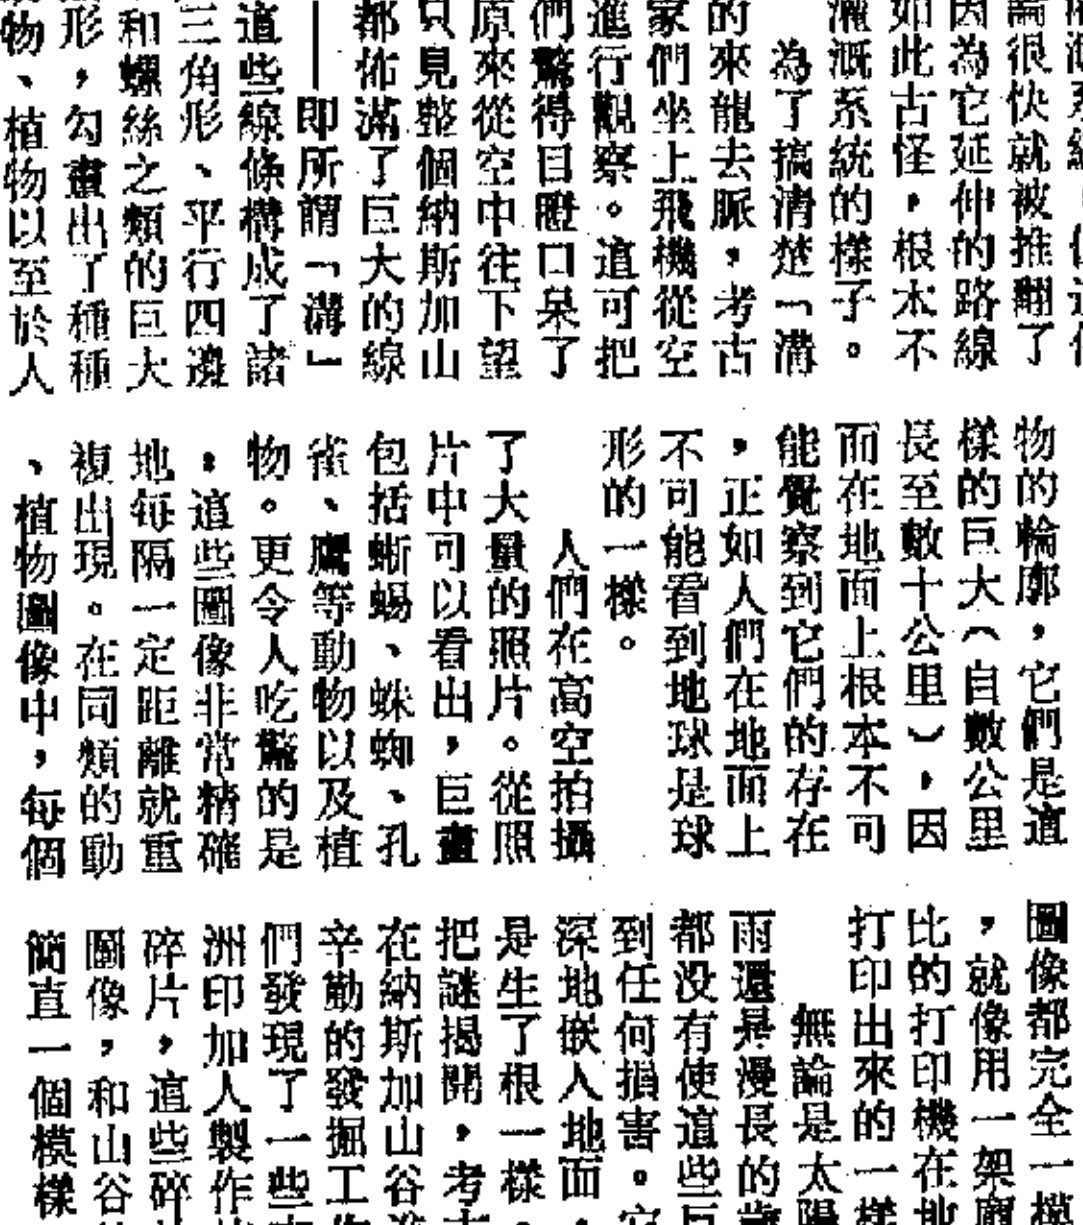 論很快就被推翻了
因為它延伸的路線
如此古怪，根本不
灌溉系統的樣子。
為了搞清楚「溝
的來龍去脈，考古
家們坐上飛機從空
進行觀察。這可把
們驚得目瞪口呆了
原來從空中往下望
只見整個納斯加山
都佈滿了巨大的線
——即所謂「溝」
這些線條構成了諸
三角形、平行四邊
和螺絲之類的巨大
形，勾畫出了種種
物、植物以至於人
物的輪廓，它們是這
樣的巨大（自數公里
長至數十公里），因
而在地面上根本不可
能覺察到它們的存在
，正如人們在地面上
不可能看到地球是球
形的一樣。
人們在高空拍攝
了大量的照片。從照
片中可以看出，巨畫
包括蜥蜴、蛛蜘、孔
雀、鷹等動物以及植
物。更令人吃驚的是
，這些圖像非常精確
地每隔一定距離就重
複出現。在同類的動
、植物圖像中，每個
圖像都完全一模
，就像用一架龐
比的打印機在地
打印出來的一樣
無論是太陽
雨還是漫長的歲
都没有使這些巨
到任何損害。它
深地嵌入地面，
是生了根一樣。
把謎揭開，考
在納斯加山谷進
辛勤的發掘工作
們發現了一些
洲印加人製作
碎片，這些碎
圖像，和山谷
簡直一個模樣